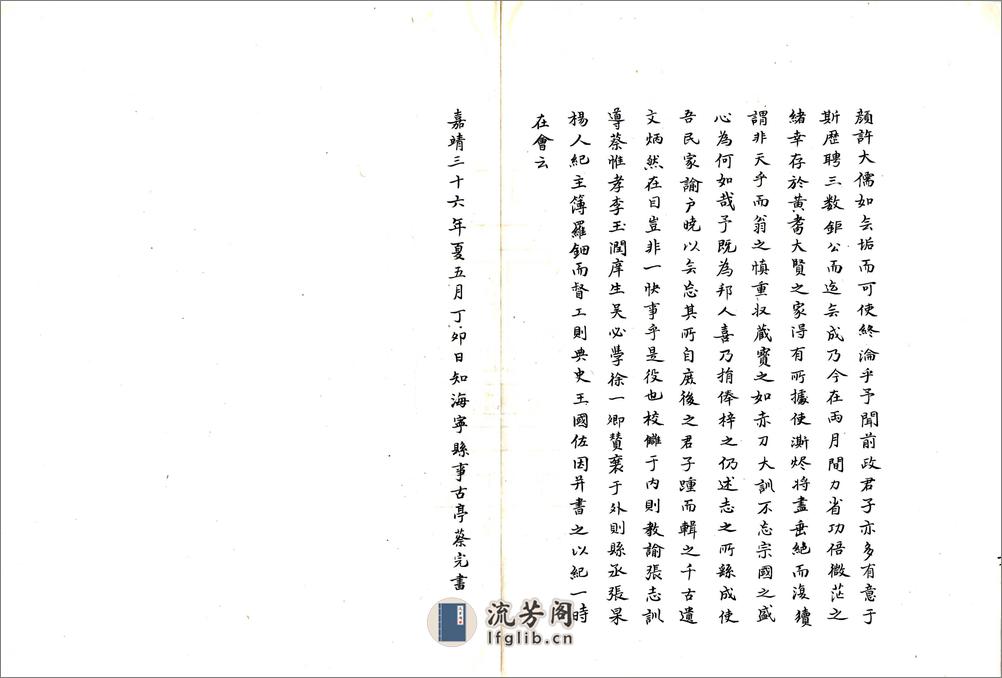 顔許大儒如無垢而可使終淪乎予聞前政君子亦多有意于
斯歷聘三數鉅公而迄無成乃今在兩月間力省功倍微茫之
緒幸存於黃耈大賢之家得有所據使澌烬將盡垂絶而復續
謂非天乎而翁之慎重收藏寳之如赤刀大訓不忘宗國之盛
心為何如哉予既為邦人喜乃捐俸梓之仍述志之所繇成使
吾民家諭户曉以無忘其所自庶後之君子踵而輯之千古遺
文炳然在目豈非一快事乎是役也校讎于内則教諭張志訓
導蔡惟孝李玉潤庠生吳必學徐一卿賛襄于外則縣丞張杲
楊人紀主簿羅鈿而督工則典史王國佐因并書之以紀一時
在會云
嘉靖三十六年夏五月丁夘日知海寧縣事古亭蔡完書
流芳阁
lfglib.cn